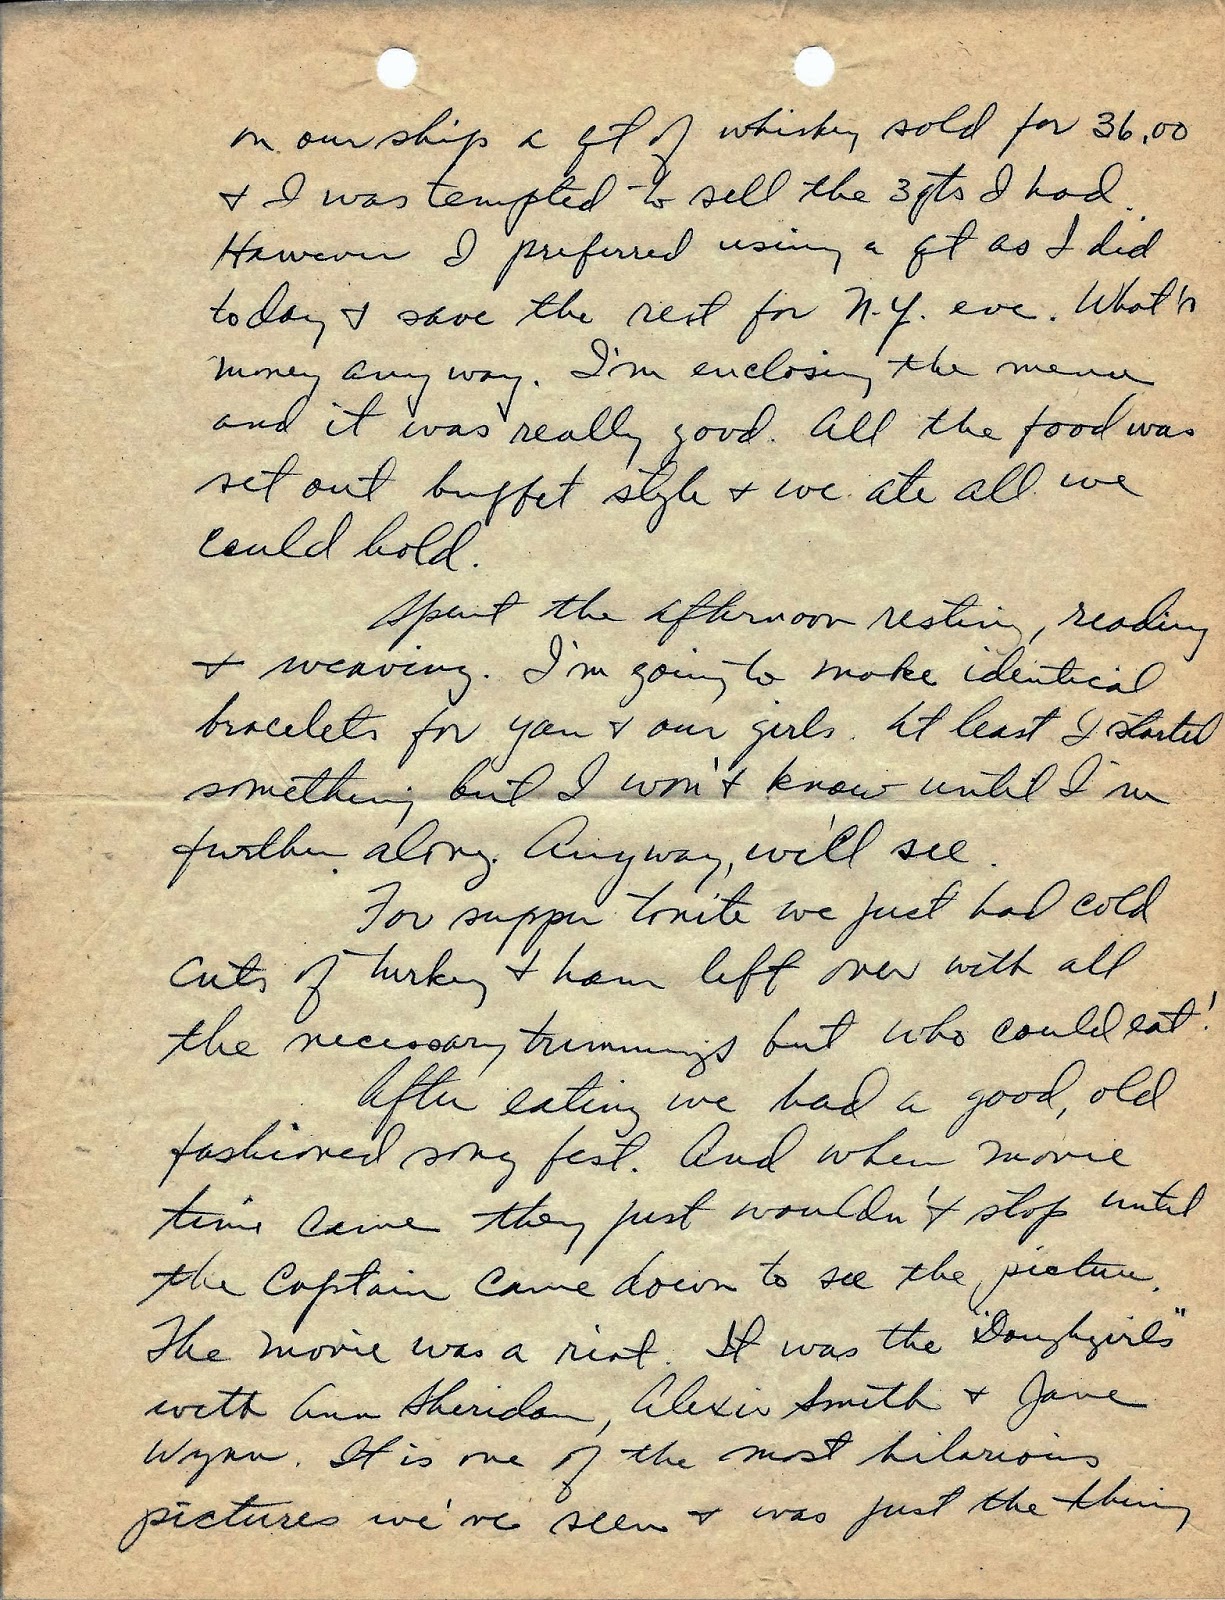 on our ship a qt of whiskey sold for 36.00
& I was tempted to sell the 3 qts I had.
However I preferred using a qt as I did
today & save the rest for N.Y. eve. What's
money anyway. I'm enclosing the menu
and it was really good. All the food was
set out buffet style & we ate all we
could hold.
Spent the afternoon resting, reading
& weaving. I'm going to make identical
bracelets for you & our girls. At least I started
something but I won't know until I'm
further along. Anyway, we'll see.
For supper tonite we just had cold
cuts of turkey & ham left over with all
the necessary trimmings but who could eat!
After eating we had a good, old
fashioned song fest. And when movie
time came they just wouldn't stop until
the Captain came down to see the picture.
The movie was a riot. It was the "Doughgirls"
with Ann Sheridan, Alexis Smith & Jane
Wynn. It is one of the most hilarious
pictures we've seen & was just the thing